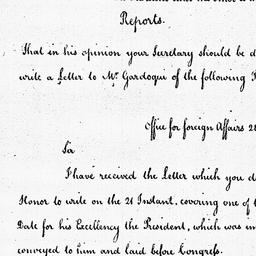 Reports.
That in his opinion your Secretary should be
write a Letter to Mr. Gardoqui of the following
Office for foreign Affairs 2
Sir
I have received the Letter which you d
Honor to write on the 21 Instant, covering one of
Date for his Excellency the President, which was
conveyed to him and laid before Congress.